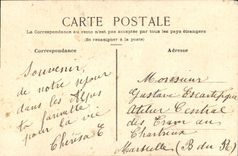 CARTE POSTALE
La Correspondance au recto n'est pas acceptée par tous les pays étrangers
(Se renseigner à la poste)
Correspondance
Adresse
Souvenir
de notre séjour
dans les Alpes
ta
pour la vie
Thérèsa E
Monsieur
Gustave
Atelier Central
des
Chartreux
Marseille (B du R)